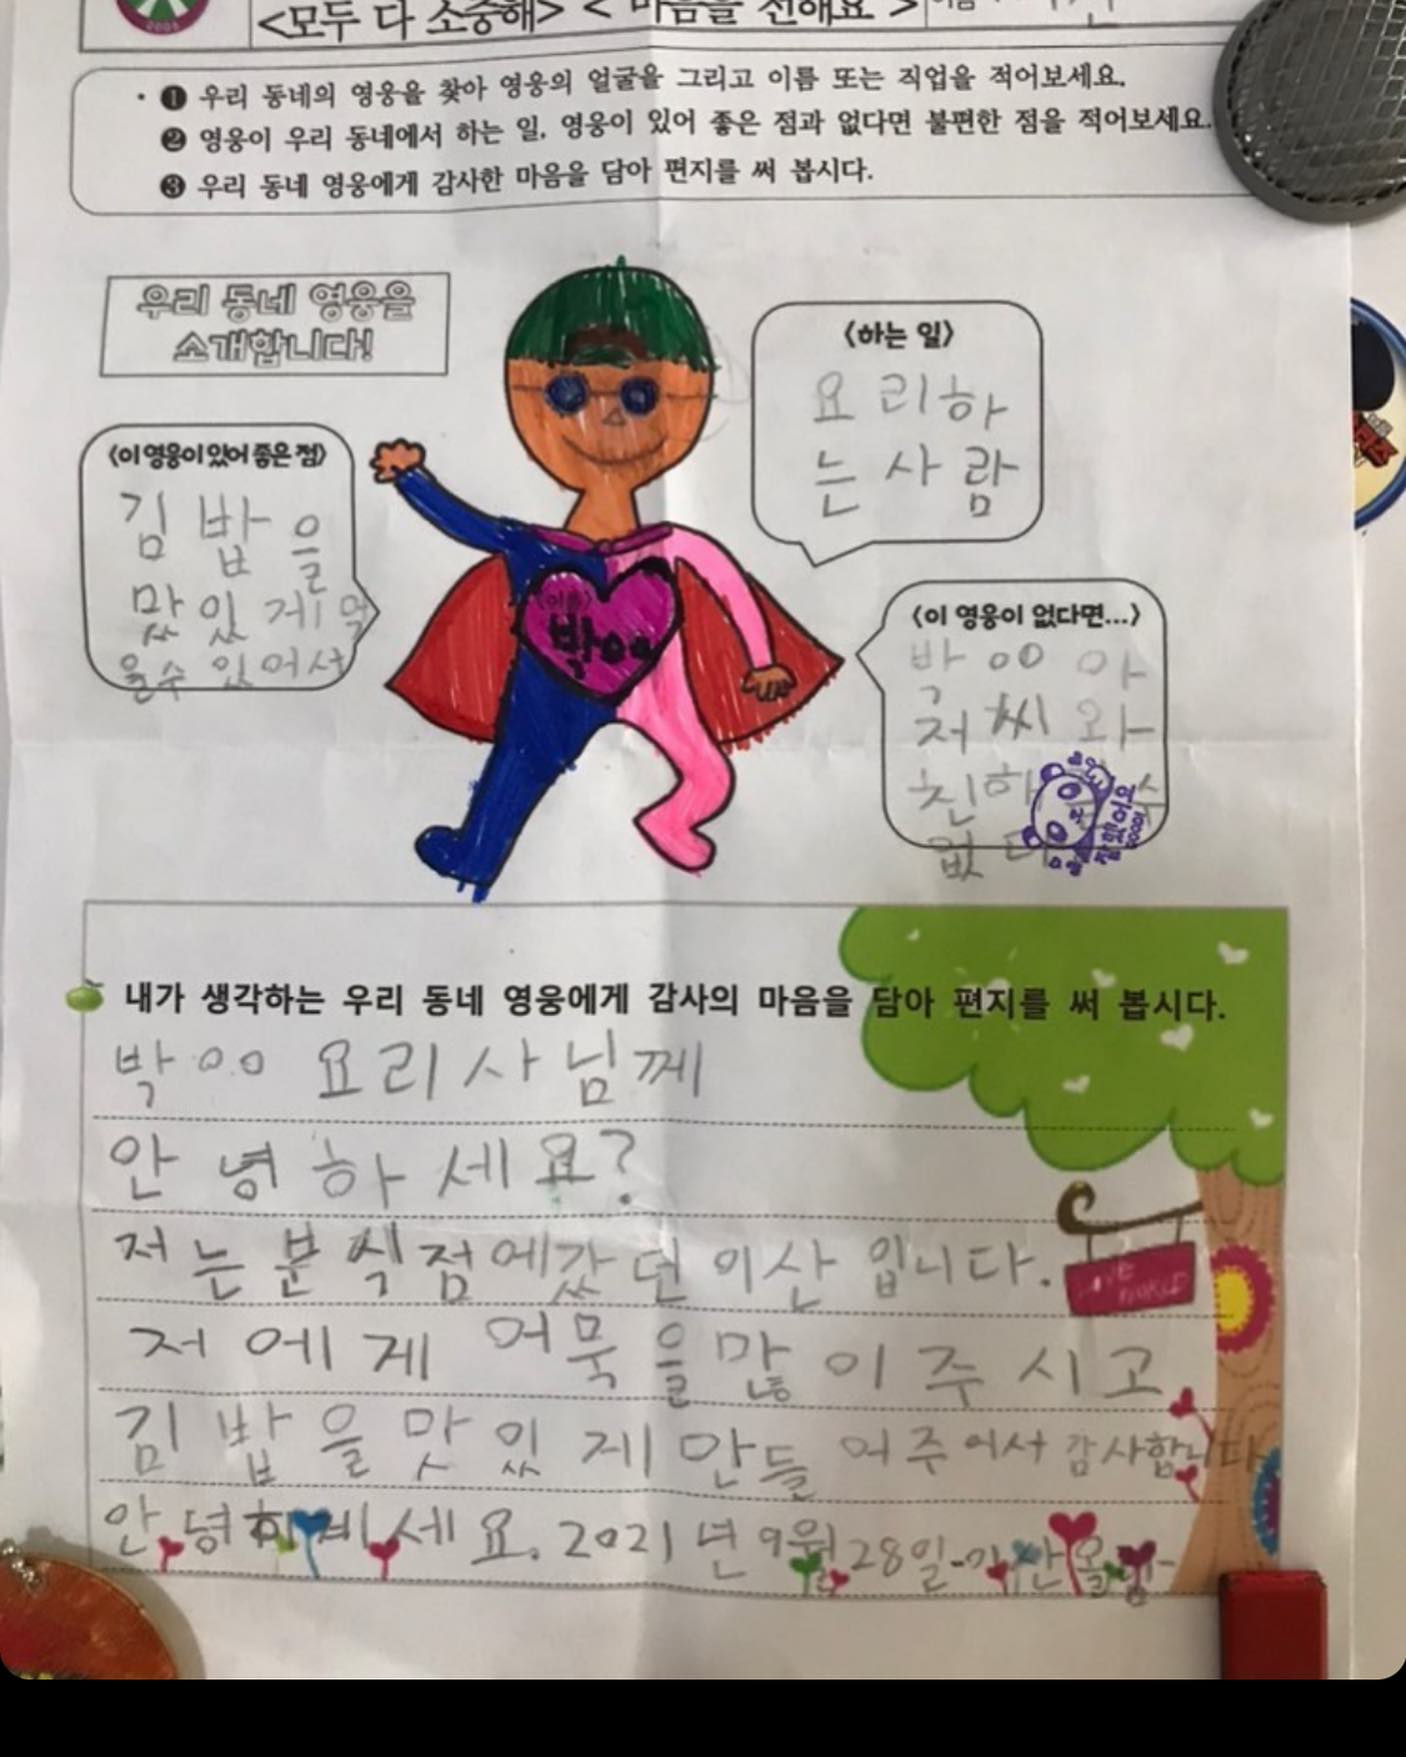 2005
<모두 다 소중해> < 마음을 전해요 >
❶ 우리 동네의 영웅을 찾아 영웅의 얼굴을 그리고 이름 또는 직업을 적어보세요.
❷ 영웅이 우리 동네에서 하는 일, 영웅이 있어 좋은 점과 없다면 불편한 점을 적어보세요.
❸ 우리 동네 영웅에게 감사한 마음을 담아 편지를 써 봅시다.
우리 동네 영웅을
소개합니다!
<이 영웅이 있어 좋은 점>
김밥을
맜있게 먹
을수 있어서
<이름>
박ㅇㅇ
<하는 일>
요리하
는 사람
<이 영웅이 없다면...>
박ㅇㅇ 아
저씨와
친해 수
없다
참 잘했어요
내가 생각하는 우리 동네 영웅에게 감사의 마음을 담아 편지를 써 봅시다.
박ㅇㅇ 요리사님께
안녕하세요?
저는 분식점에 갔던 이산입니다.
저에게 어묵을 많이 주시고
김밥을 맛있게 만들어주어서 감사합니다
안녕히 세요. 2021년 9월 28일 -이산 올림-